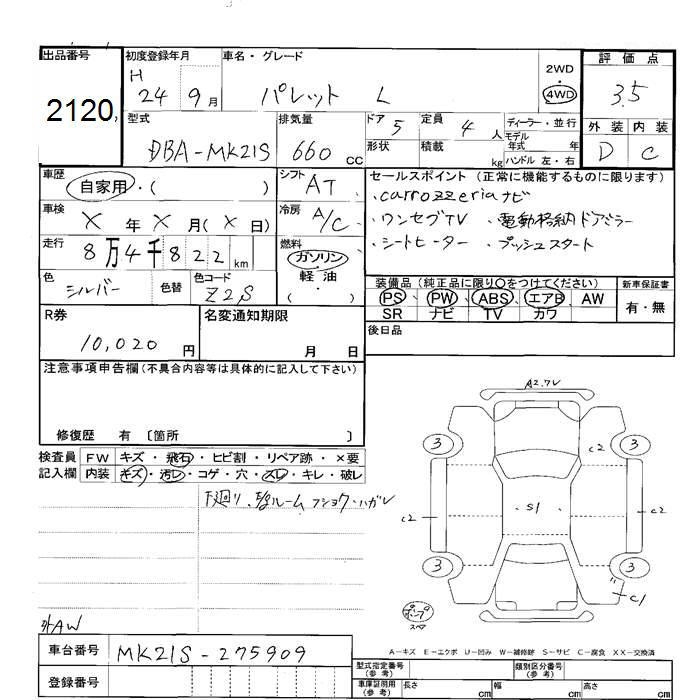 出品番号 初度登録年月 車名・グレード 2WD 評価点
2120 H 24 9月 パレット L 4WD 3.5
型式 排気量 ドア 5 定員 4 人 ディーラー・並行 外装 内装
DBA-MK21S 660 CC 形状 積載 kg モデル年式 年 D C
ハンドル 左・右
車歴 自家用・( ) シフト AT セールスポイント(正常に機能するものに限ります)
・carrozzeriaナビ
車検 X 年 X 月(X 日) 冷房 A/C ・ワンセグTV ・電動格納ドアミラー
走行 8万4千822km 燃料 ガソリン・軽油・ ・シートヒーター ・プッシュスタート
色 シルバー 色替 色コード Z2S 装備品(純正品に限り○をつけてください) 新車保証書
PS、PW、ABS、エアB、AW 有・無
SR ナビ TV カワ
R券 10,020 円 名変通知期限 月 日 後日品
注意事項申告欄(不具合内容等は具体的に記入して下さい)
修復歴 有 〔箇所 〕
検査員 FW キズ・飛石・ヒビ割・リペア跡・×要
記入欄 内装 キズ・汚レ・コゲ・穴・スレ・キレ・破レ
下廻り、E/gルーム フショク・ハガレ
A2.7V
3 3
c2
c2 S1 c2
3 3
C1
ポンプ
スペア
外AW
A-キズ E-エクボ U-凹み W-補修跡 S-サビ C-腐食 XX-交換済
車台番号 MK21S-275909
登録番号
型式指定番号(参考) 類別区分番号(参考)
車庫証明用(参考) 長さ cm 幅 cm 高さ cm